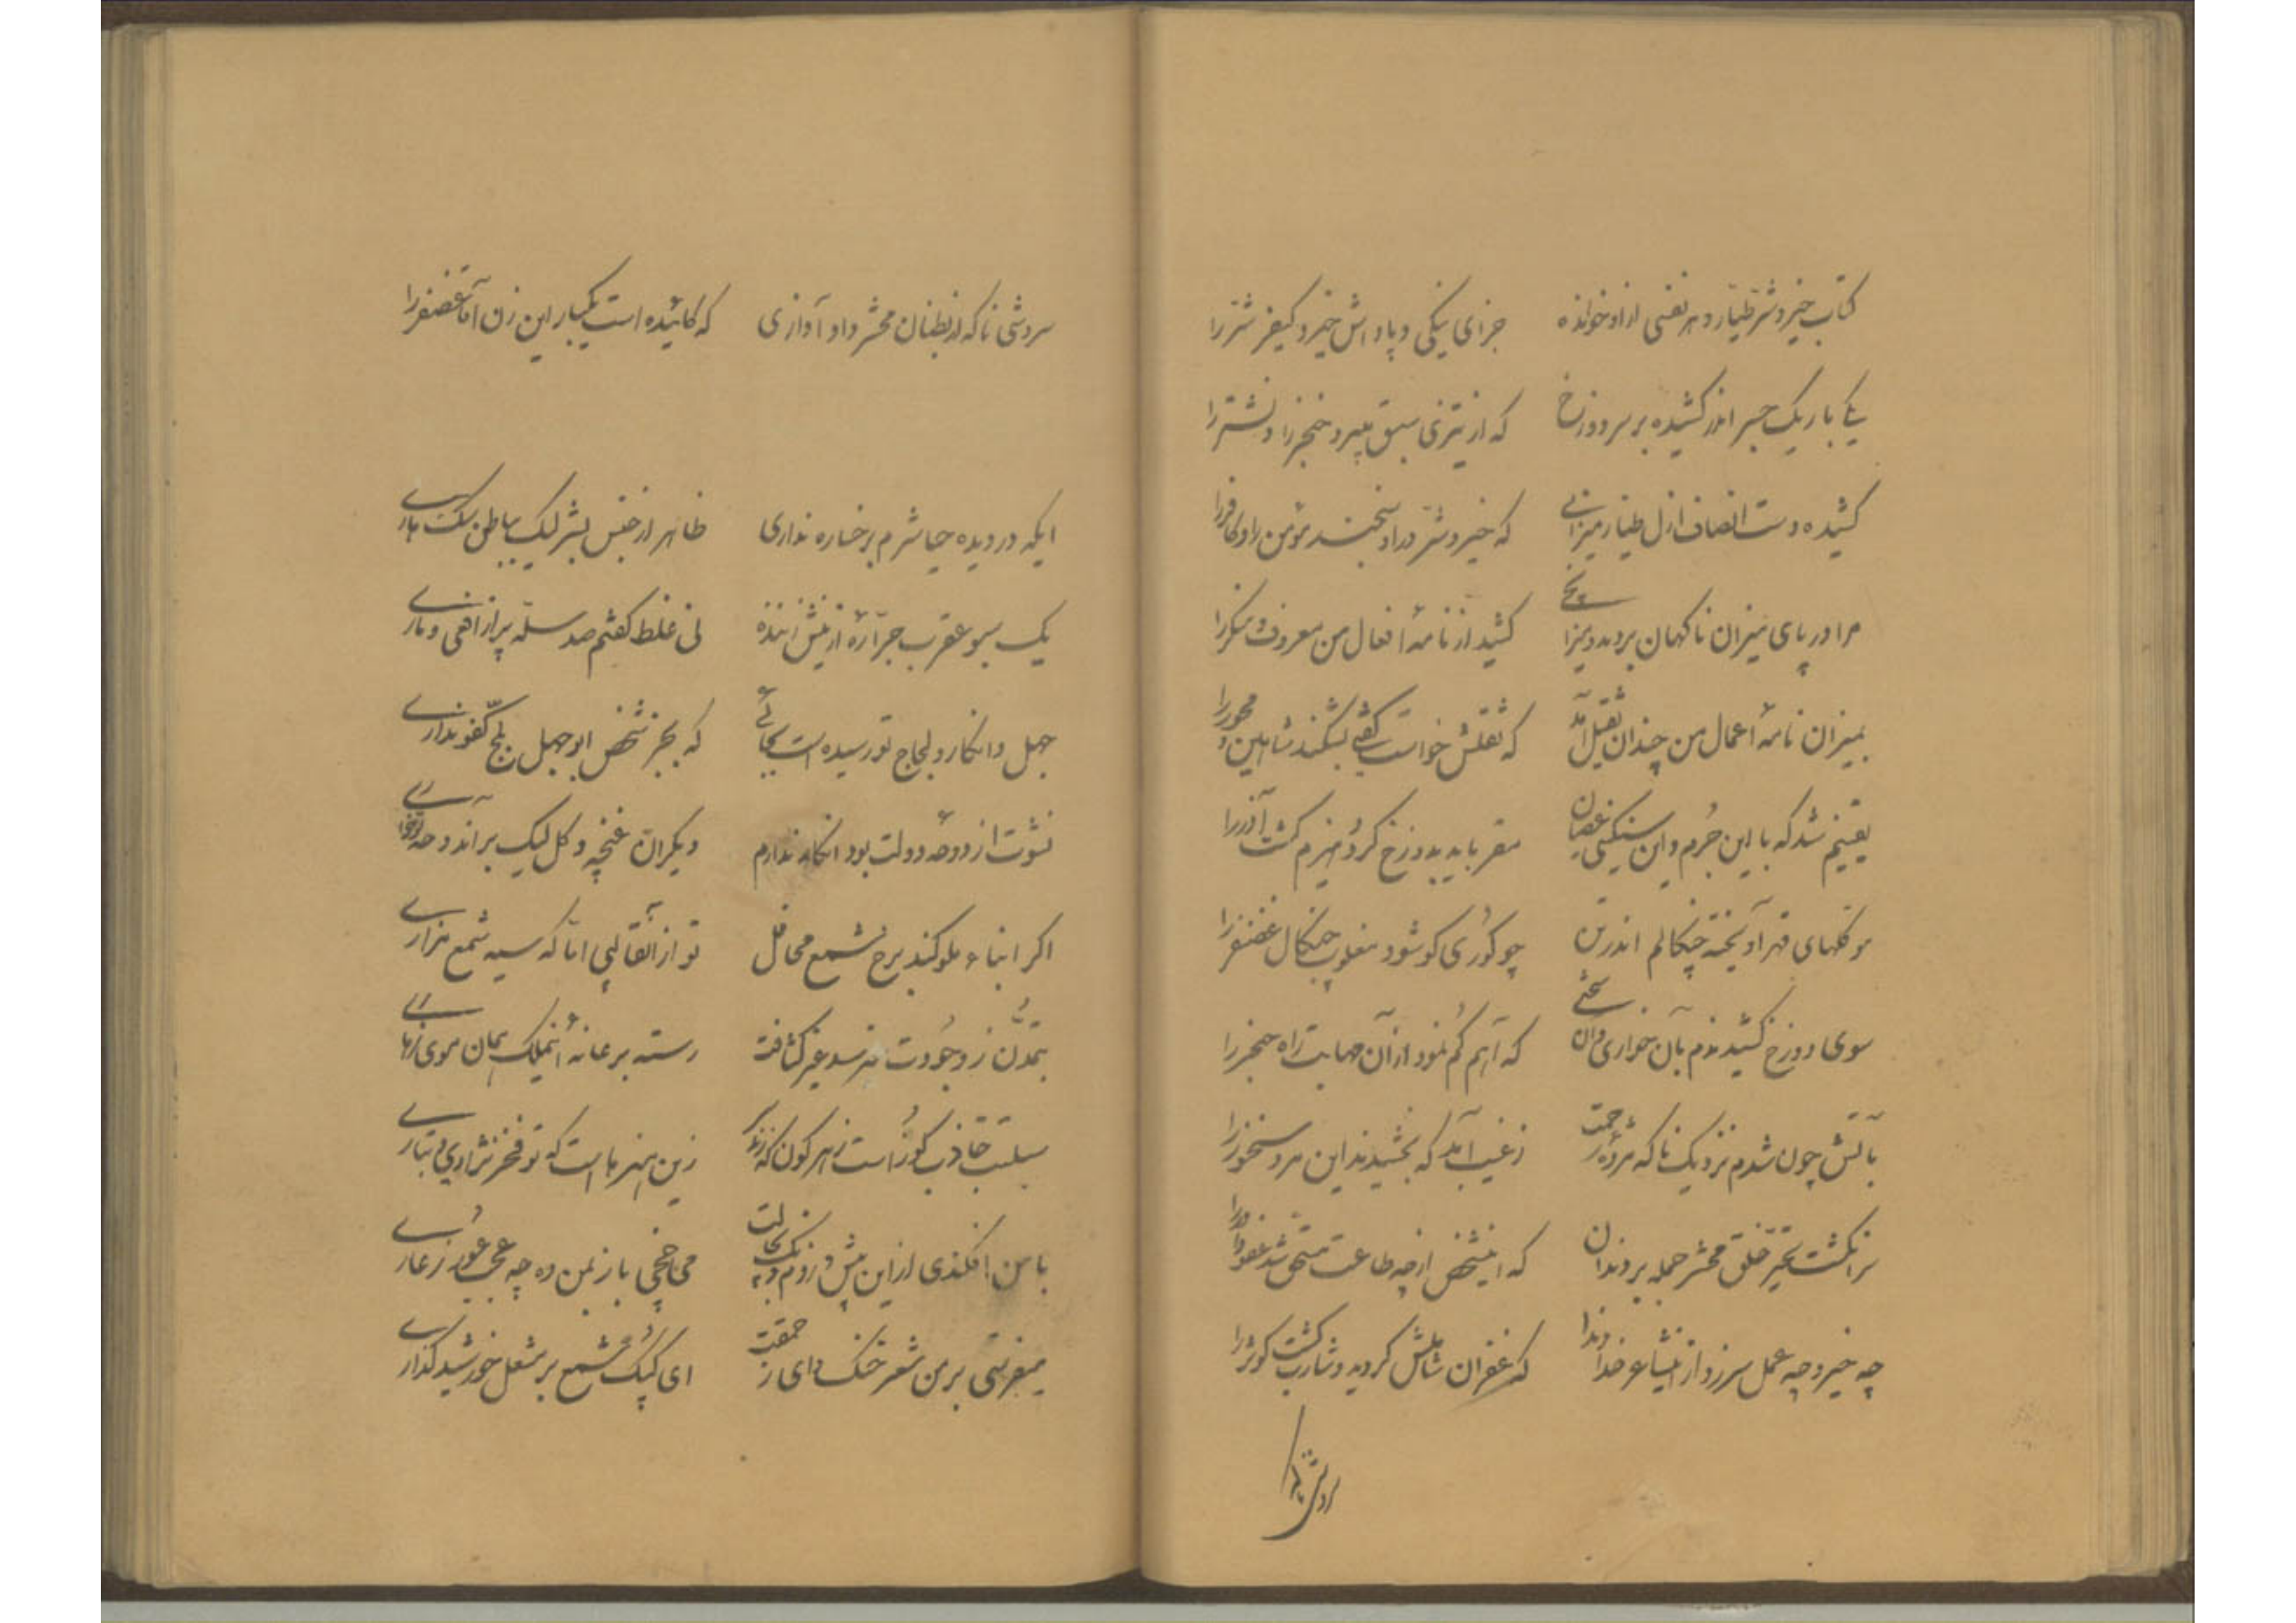 کتاب خیر و شر طیار و هر نفسی از او خوانده جزای نیکی و پاداش خیر و کیفر شر را
یکی باریک جسر اندر کشیده بر سر دوزخ که از تیزی سبق میبرد خنجر را و نشتر را
کشیده دست انصاف ازل طیار میزانی که خیر و شر در او سنجند مؤمن را و کافر را
مرا در پای میزان ناگهان بردند و میزان کشید از نامهٔ افعال من معروف و منکر را
بمیزان نامهٔ اعمال من چندان ثقیل آمد که ثقلش خواست بشکند شاهین و محور را
یقینم شد که با این جرم و این سنگینی عصیان مقر باید بدوزخ کرد هیزم گشت آذر را
موکلهای قهر آویخته چنگالم اندر تن چو گوری کو شود مغلوب چنگال غضنفر را
سوی دوزخ کشیدندم بآن خواری و آن سختی که آهم گم نمود از آن مهابت راه حنجر را
بآتش چون شدم نزدیک ناگه مژدهٔ رحمت ز غیب آمد که بخشیدند این مرد سخنور را
سر انگشت تحیر خلق محشر جمله بر دندان که اینشخص از چه طاعت مستحق شد عفو داور را
چه خیر و چه عمل سر زد از این شاعر خداوندا که غفران شاملش گردید و شارب گشت کوثر را
سروشی ناگه از بطنان محشر داد آوازی که گائیده است یکبار این زن آقا غضنفر را
ایکه در دیده حیا شرم برخساره نداری ظاهر از جنس بشر لیک بباطن سگ هاری
یک سبو عقرب جراره از نیش زننده نی غلط گفتم صد سله پر از افعی و ماری
جهل و انکار و لجاج تو رسیده است بجائی که بجز شخص ابوجهل کفو نداری
نشوت از دوحهٔ دولت بود انکار ندارم دیگران غنچه و گل لیک برآند و تو خاری
اگر ابناء ملوکند برخ شمع محافل تو از آنقالبی اما که سیه شمع مزاری
تمدن ز وجودت نرسد غیر کثافت رسته بر عانهٔ اینملک بمان موی زهاری
زین هنرهاست که تو فخر نژادی و تباری
با من افکندی از این پیش می‌چخی باز بمن وه چه عجب عور ز عاری
میفرستی بر من شعر خنک وای ز حمقت ای کپک شمع بر مشعل خورشید گذاری